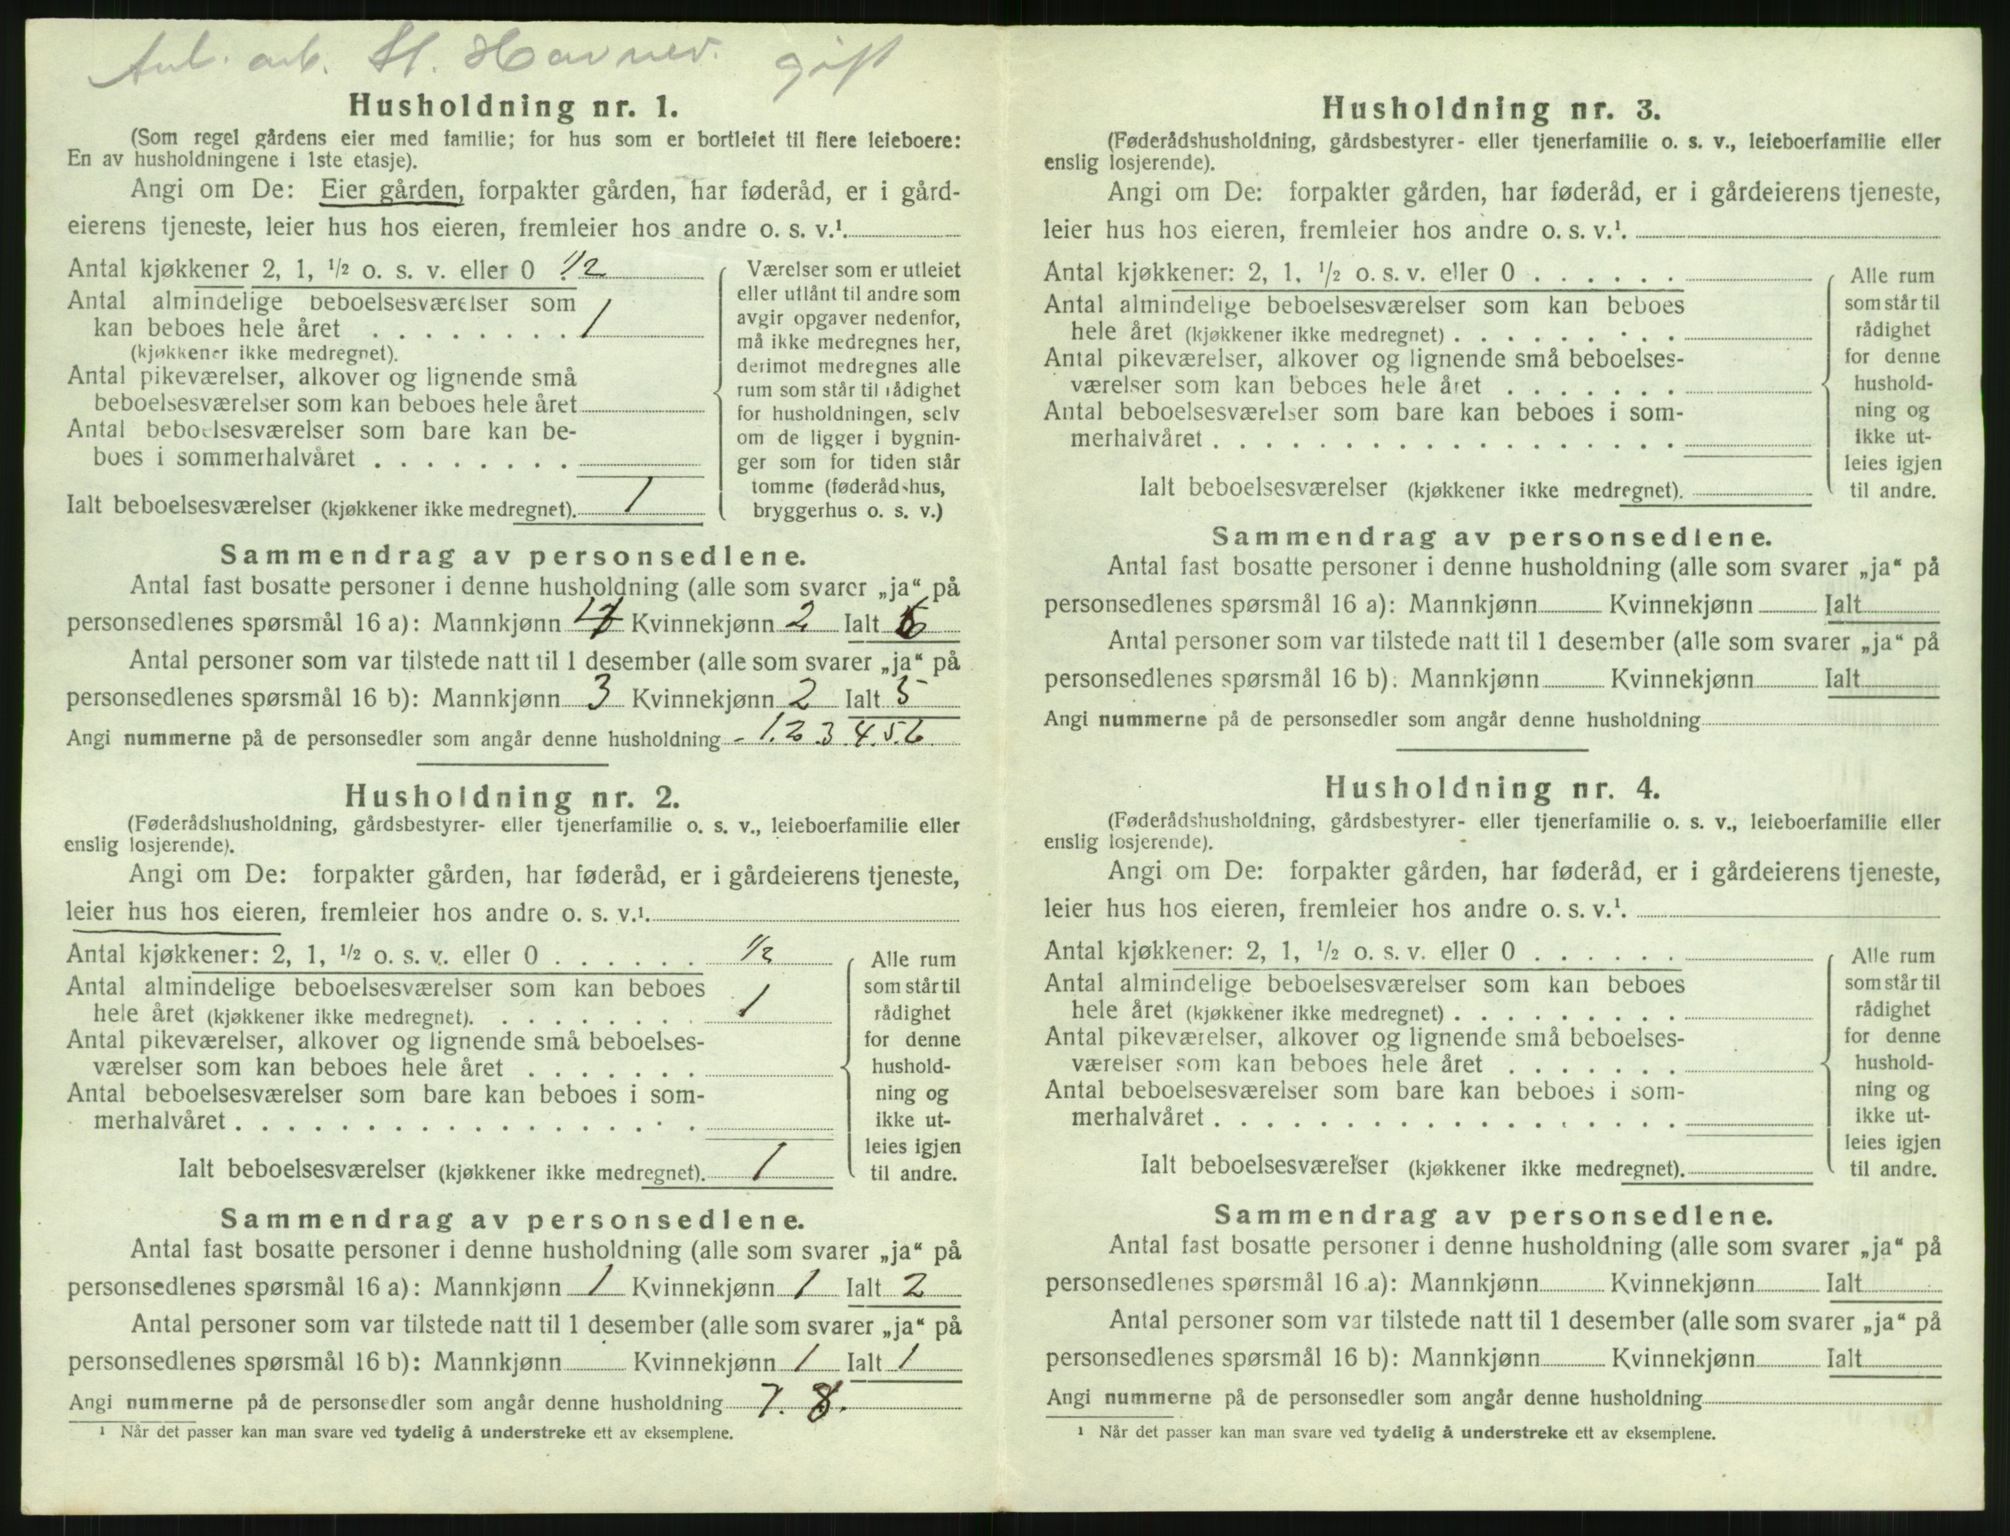 arb. St. Havnev. gift
Husholdning nr. 1.
(Som regel gårdens eier med familie; for hus som er bortleiet til flere leieboere:
En av husholdningene i 1ste etasje).
Angi om De: Eier gården, forpakter gården, har føderåd, er i gård-
eierens tjeneste, leier hus hos eieren, fremleier hos andre o. s. v.¹.
Antal kjøkkener 2, 1, ½ o. s. v. eller 0 ½
Antal almindelige beboelsesværelser som
kan beboes hele året . . . . . . . . 1
(kjøkkener ikke medregnet).
Antal pikeværelser, alkover og lignende små
beboelsesværelser som kan beboes hele året
Antal beboelsesværelser som bare kan be-
boes i sommerhalvåret . . . . . . . .
Ialt beboelsesværelser (kjøkkener ikke medregnet). 1
Værelser som er utleiet
eller utlånt til andre som
avgir opgaver nedenfor,
må ikke medregnes her,
derimot medregnes alle
rum som står til rådighet
for husholdningen, selv
om de ligger i bygnin-
ger som for tiden står
tomme (føderådshus,
bryggerhus o. s. v.)
Sammendrag av personsedlene.
Antal fast bosatte personer i denne husholdning (alle som svarer „ja“ på
personsedlenes spørsmål 16 a): Mannkjønn 4 Kvinnekjønn 2 Ialt 6
Antal personer som var tilstede natt til 1 desember (alle som svarer „ja“ på
personsedlenes spørsmål 16 b): Mannkjønn 3 Kvinnekjønn 2 Ialt 5
Angi nummerne på de personsedler som angår denne husholdning - 1. 2 3. 4. 5. 6.
Husholdning nr. 2.
(Føderådshusholdning, gårdsbestyrer- eller tjenerfamilie o. s. v., leieboerfamilie eller
enslig losjerende).
Angi om De: forpakter gården, har føderåd, er i gårdeierens tjeneste,
leier hus hos eieren, fremleier hos andre o. s. v.¹.
Antal kjøkkener: 2, 1, ½ o. s. v. eller 0 . . . . . . ½
Antal almindelige beboelsesværelser som kan beboes
hele året (kjøkkener ikke medregnet). . . . . . . . . 1
Antal pikeværelser, alkover og lignende små beboelses-
værelser som kan beboes hele året . . . . . . .
Antal beboelsesværelser som bare kan beboes i som-
merhalvåret . . . . . . . . . . . . . . . . . .
Ialt beboelsesværelser (kjøkkener ikke medregnet). 1
Alle rum
som står til
rådighet
for denne
hushold-
ning og
ikke ut-
leies igjen
til andre.
Sammendrag av personsedlene.
Antal fast bosatte personer i denne husholdning (alle som svarer „ja“ på
personsedlenes spørsmål 16 a): Mannkjønn 1 Kvinnekjønn 1 Ialt 2
Antal personer som var tilstede natt til 1 desember (alle som svarer „ja“ på
personsedlenes spørsmål 16 b): Mannkjønn Kvinnekjønn 1 Ialt 1
Angi nummerne på de personsedler som angår denne husholdning 7. 8.
¹ Når det passer kan man svare ved tydelig å understreke ett av eksemplene.
Husholdning nr. 3.
(Føderådshusholdning, gårdsbestyrer- eller tjenerfamilie o. s. v., leieboerfamilie eller
enslig losjerende).
Angi om De: forpakter gården, har føderåd, er i gårdeierens tjeneste,
leier hus hos eieren, fremleier hos andre o. s. v.¹.
Antal kjøkkener: 2, 1, ½ o. s. v. eller 0 . . . . . .
Antal almindelige beboelsesværelser som kan beboes
hele året (kjøkkener ikke medregnet) . . . . . . . . .
Antal pikeværelser, alkover og lignende små beboelses-
værelser som kan beboes hele året . . . . . . .
Antal beboelsesværelser som bare kan beboes i som-
merhalvåret . . . . . . . . . . . . . . . . . .
Ialt beboelsesværelser (kjøkkener ikke medregnet).
Alle rum
som står til
rådighet
for denne
hushold-
ning og
ikke ut-
leies igjen
til andre.
Sammendrag av personsedlene.
Antal fast bosatte personer i denne husholdning (alle som svarer „ja“ på
personsedlenes spørsmål 16 a): Mannkjønn Kvinnekjønn Ialt
Antal personer som var tilstede natt til 1 desember (alle som svarer „ja“ på
personsedlenes spørsmål 16 b): Mannkjønn Kvinnekjønn Ialt
Angi nummerne på de personsedler som angår denne husholdning
Husholdning nr. 4.
(Føderådshusholdning, gårdsbestyrer- eller tjenerfamilie o. s. v., leieboerfamilie eller
enslig losjerende).
Angi om De: forpakter gården, har føderåd, er i gårdeierens tjeneste,
leier hus hos eieren, fremleier hos andre o. s. v.¹.
Antal kjøkkener: 2, 1, ½ o. s. v. eller 0 . . . . . .
Antal almindelige beboelsesværelser som kan beboes
hele året (kjøkkener ikke medregnet) . . . . . . . . .
Antal pikeværelser, alkover og lignende små beboelses-
værelser som kan beboes hele året . . . . . . .
Antal beboelsesværelser som bare kan beboes i som-
merhalvåret . . . . . . . . . . . . . . . . . .
Ialt beboelsesværelser (kjøkkener ikke medregnet).
Alle rum
som står til
rådighet
for denne
hushold-
ning og
ikke ut-
leies igjen
til andre.
Sammendrag av personsedlene.
Antal fast bosatte personer i denne husholdning (alle som svarer „ja“ på
personsedlenes spørsmål 16 a): Mannkjønn Kvinnekjønn Ialt
Antal personer som var tilstede natt til 1 desember (alle som svarer „ja“ på
personsedlenes spørsmål 16 b): Mannkjønn Kvinnekjønn Ialt
Angi nummerne på de personsedler som angår denne husholdning
¹ Når det passer kan man svare ved tydelig å understreke ett av eksemplene.